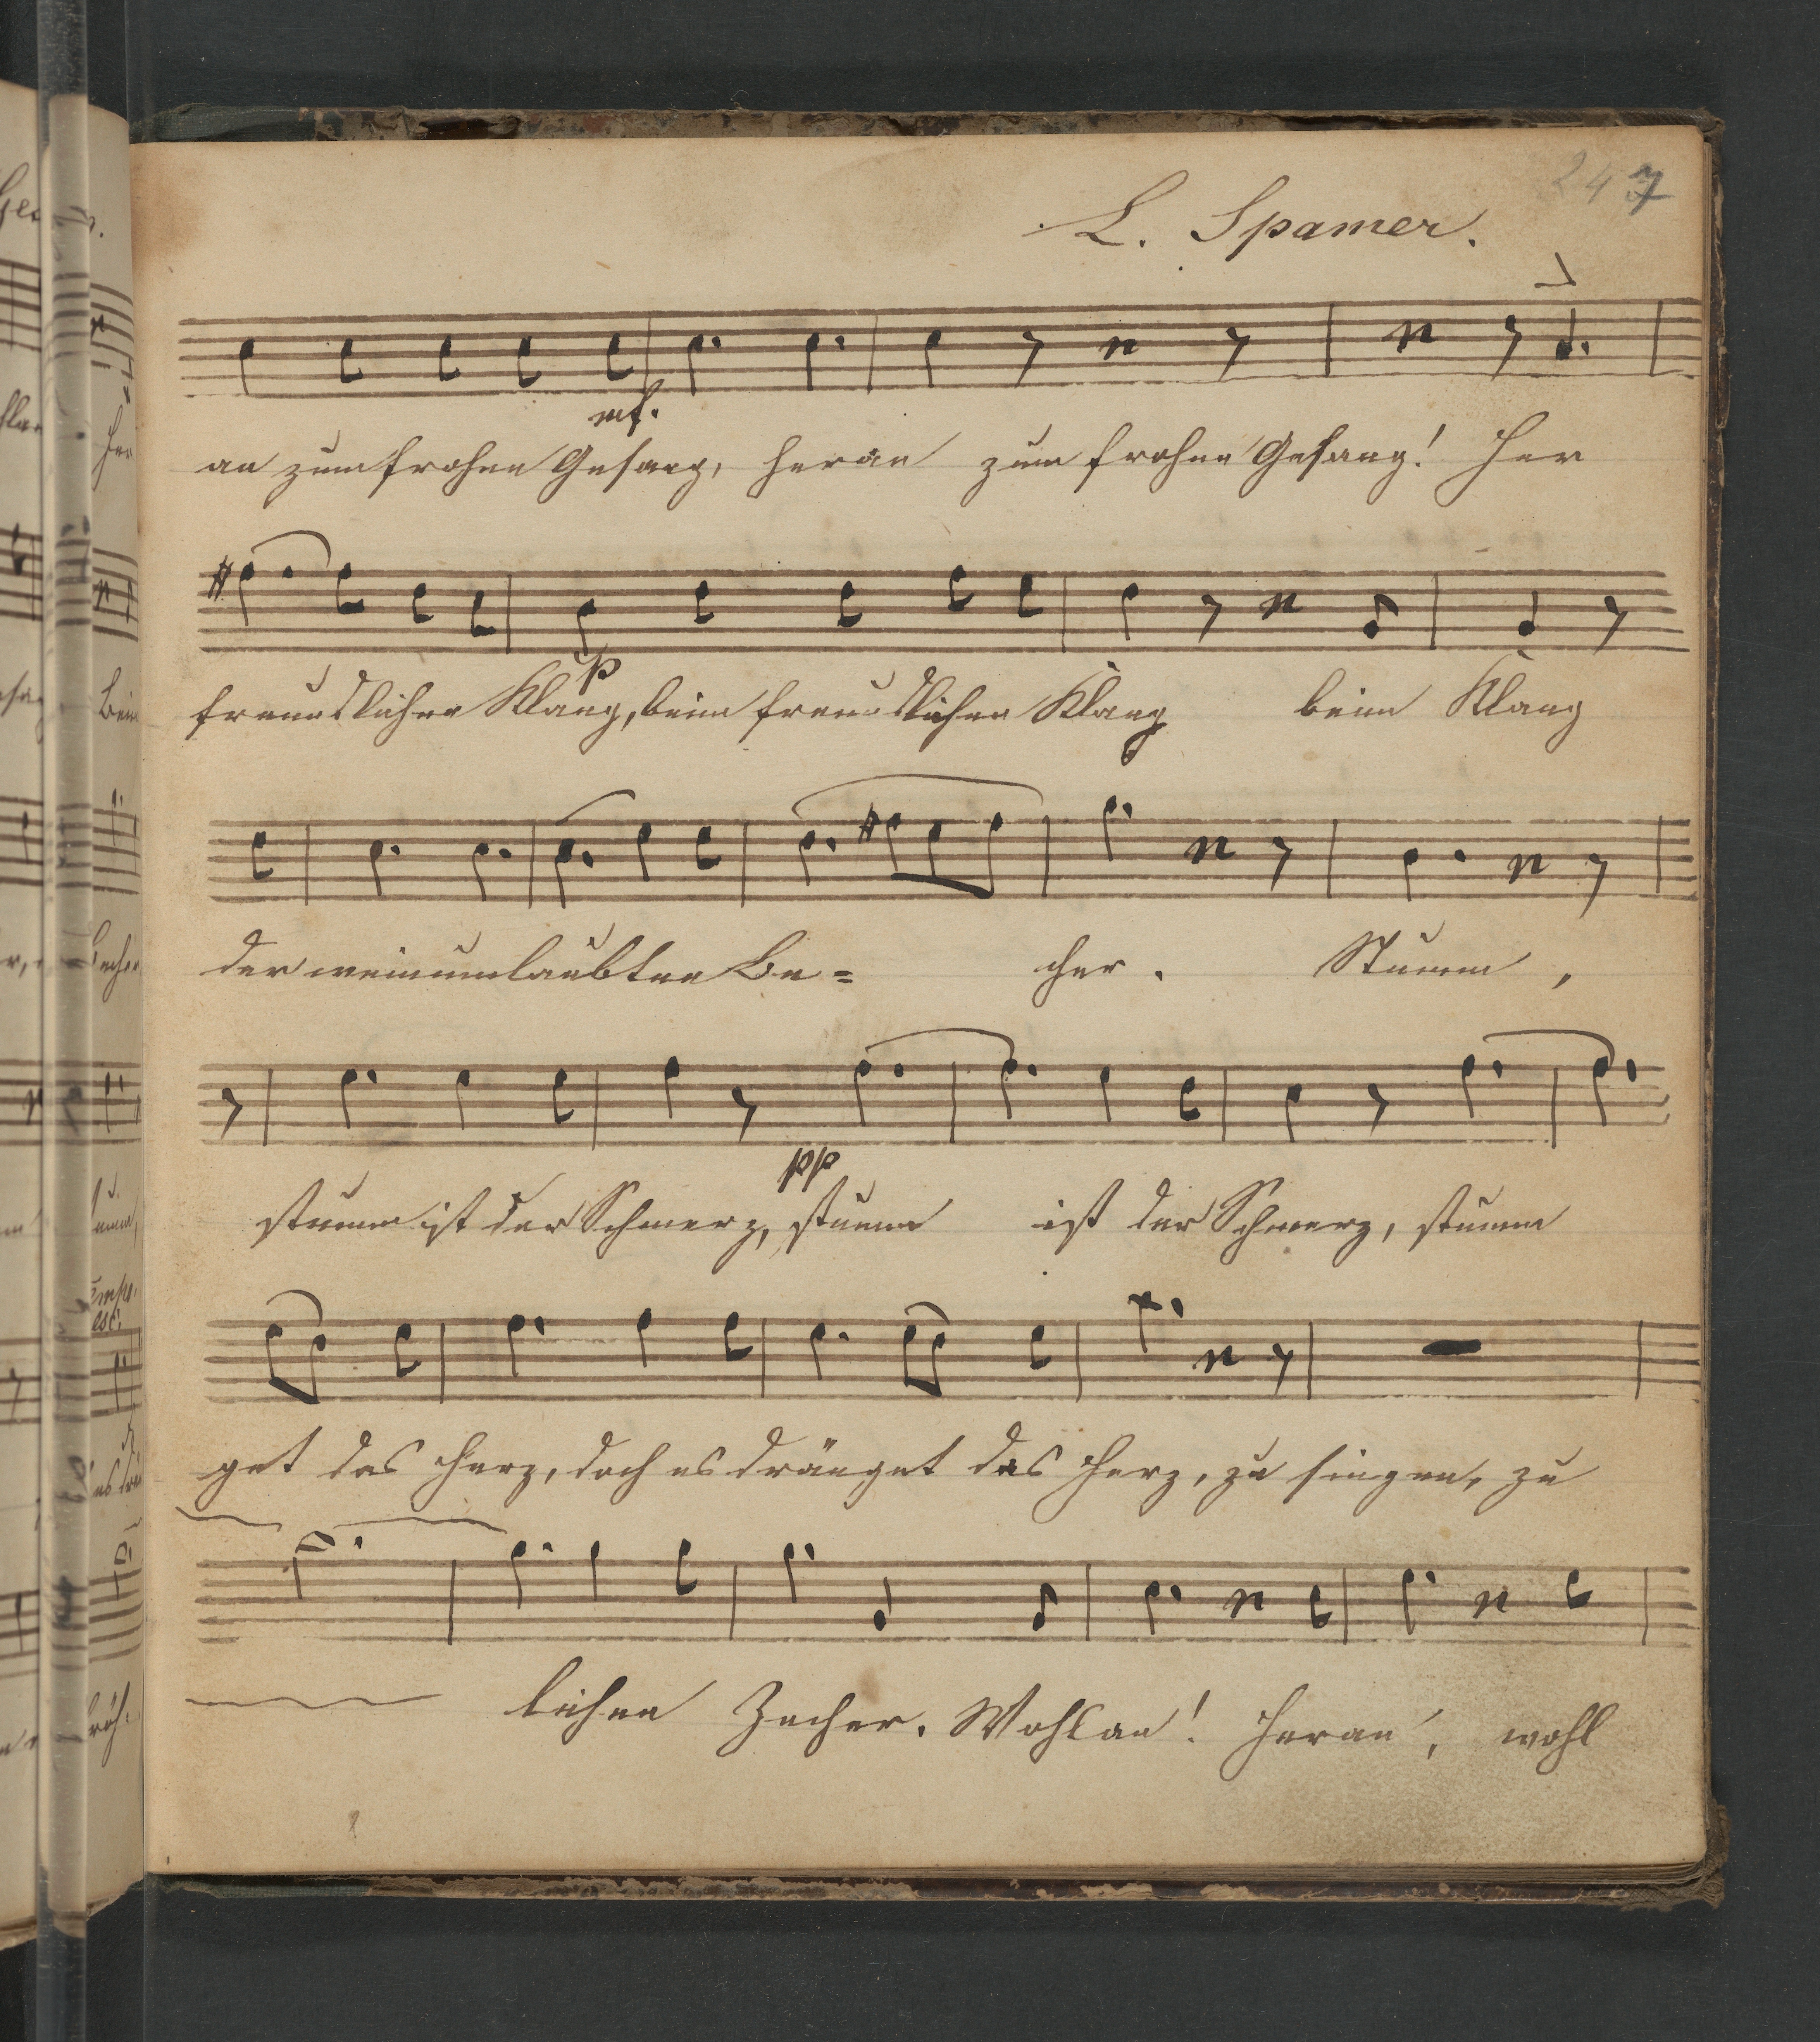 247
L. Spamer.
mf.
an zum frohen Gesang, heran zum frohen Gesang! Her
p
freundlichen Klang, beim freundlichen Klang beim Klang
der weinumlaubten Be= cher. Stumm,
pp
stumm ist der Schmerz, stumm ist der Schmerz, stumm
get das Herz, doch es dränget das Herz, zu singen, zu
lichen Zecher. Wohlan! heran, wohl